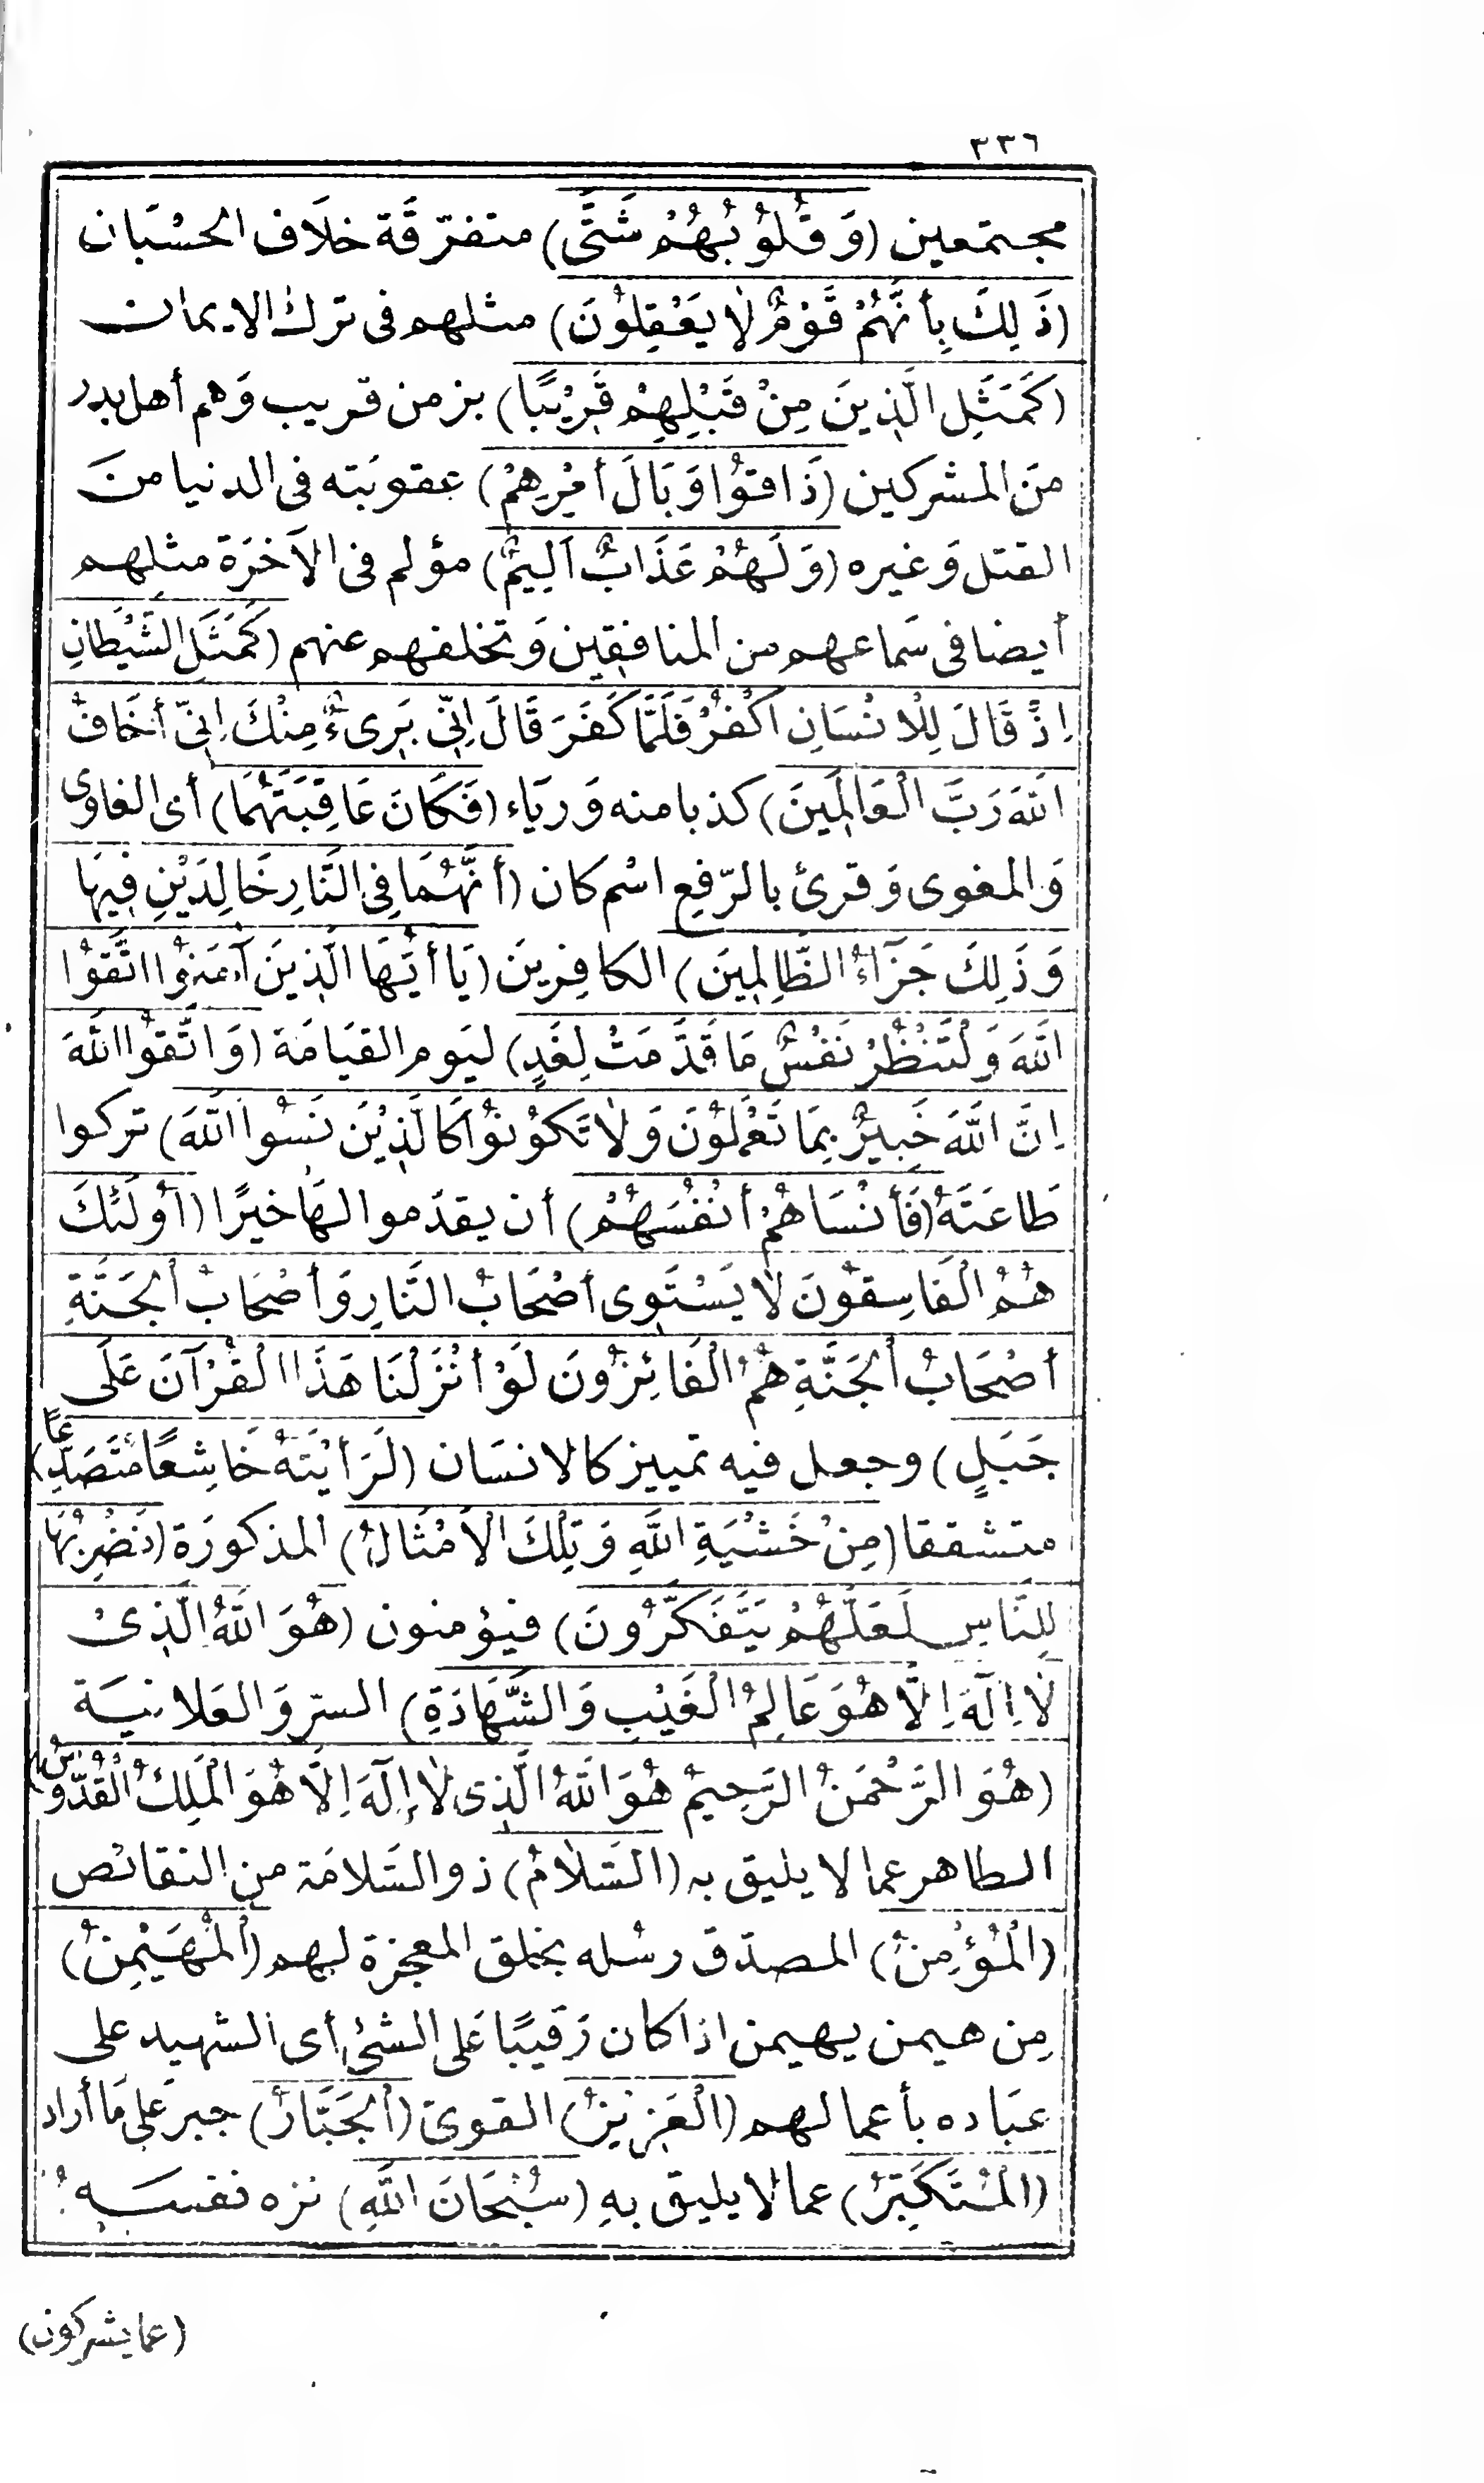 ٣٣٦
مجتمعين (وَقُلُوْبُهُمْ شَتَّى) متفرّقَة خلَاف الحسْبَان
(ذَلِكَ بِأَنَّهُمْ قَوْمٌ لَا يَعْقِلُوْنَ) مثلهم فى ترك الايمان
(كَمَثَلِ الَّذِينَ مِنْ قَبْلِهِمْ قَرِيْبًا) بزمن قريب وَهم أهل بدر
منَ المشركين (ذَاقوُا وَبَالَ أمْرِهِمْ) عقوبَته فى الدنيا منَ
القتل وَغيره (وَلَهُمْ عَذَابٌ اَلِيمٌ) مؤلم فى الآخرَة مثلِهم
أيضا فى سَماعهم من المنافقين وَتخلفهم عنهم (كَمَثَلِ الشَّيْطَانِ
اِذْ قَالَ لِلْاِنْسَانِ اكْفُرْ فَلَمَّا كَفَرَ قَالَ اِنِّى بَرِىءٌ مِنْكَ اِنِّى أَخَافُ
اللهَ رَبَّ الْعَالَمِينَ) كذبا منه وَرِيَاء (فَكَانَ عَاقِبَتَهُمَا) أى الغاوى
وَالمغوى وَقرئ بالرّفع اسْم كان (أَنَّهُمَا فِى النَّارِ خَالِدَيْنِ فِيهَا
وَذَلِكَ جَزَآءُ الظَّالِمِينَ) الكافِرينَ (يَا أَيُّهَا الَّذِينَ آمَنوُا اتَّقوُا
اللهَ وَلْتَنْظُرْ نَفْسٌ مَا قَدَّمَتْ لِغَدٍ) ليَوم القيَامَة (وَاتَّقوُا اللهَ
اِنَّ اللهَ خَبِيرٌ بِمَا تَعْمَلُوْنَ وَلَا تَكُوْنوُا كَالَّذِيْنَ نَسُوا اللهَ) تركوا
طَاعَتَهُ (فَأَنْسَاهُمْ أَنْفُسَهُمْ) أن يقدّموا لهَا خيرًا (اُولَئِكَ
هُمُ الْفَاسِقوُنَ لَا يَسْتَوِى أَصْحَابُ النَّارِ وَأَصْحَابُ الْجَنَّةِ
أَصْحَابُ الْجَنَّةِ هُمُ الْفَائِزُونَ لَوْ أَنْزَلْنَا هَذَا الْقُرْآنَ عَلَى
جَبَلٍ) وجعل فيه تمييز كالانسَان (لَرَأَيْتَهُ خَاشِعًا مُتَصَدِّعًا)
متشققا (مِنْ خَشْيَةِ اللهِ وَتِلْكَ الْاَمْثَالُ) المذكورَة (نَضْرِبُهَا
لِلنَّاسِ لَعَلَّهُمْ يَتَفَكَّرُونَ) فيؤمنون (هُوَ اللهُ الَّذِىْ
لَا اِلَهَ اِلَّا هُوَ عَالِمُ الْغَيْبِ وَالشَّهَادَةِ) السر وَالعَلانيَة
(هُوَ الرَّحْمَنُ الرَّحِيمُ هُوَ اللهُ الَّذِى لَا إِلَهَ اِلَّا هُوَ الْمَلِكُ الْقُدُّوسُ)
الطاهر عما لا يليق به (السَّلَامُ) ذو السَّلامَة من النقائص
(الْمُؤْمِنُ) المصدّق رسُله بخلق المعجزة لهم (الْمُهَيْمِنُ)
مِن هيمن يهيمن اذا كان رَقيبًا عَلى الشئ أى الشهيد على
عبَاده بأعمالهم (الْعَزِيزُ) القوىّ (الْجَبَّارُ) جبر عَلى مَا أراد
(الْمُتَكَبِّرُ) عما لا يليق بهِ (سُبْحَانَ اللهِ) نزه نفسَه
(عما يشركون)